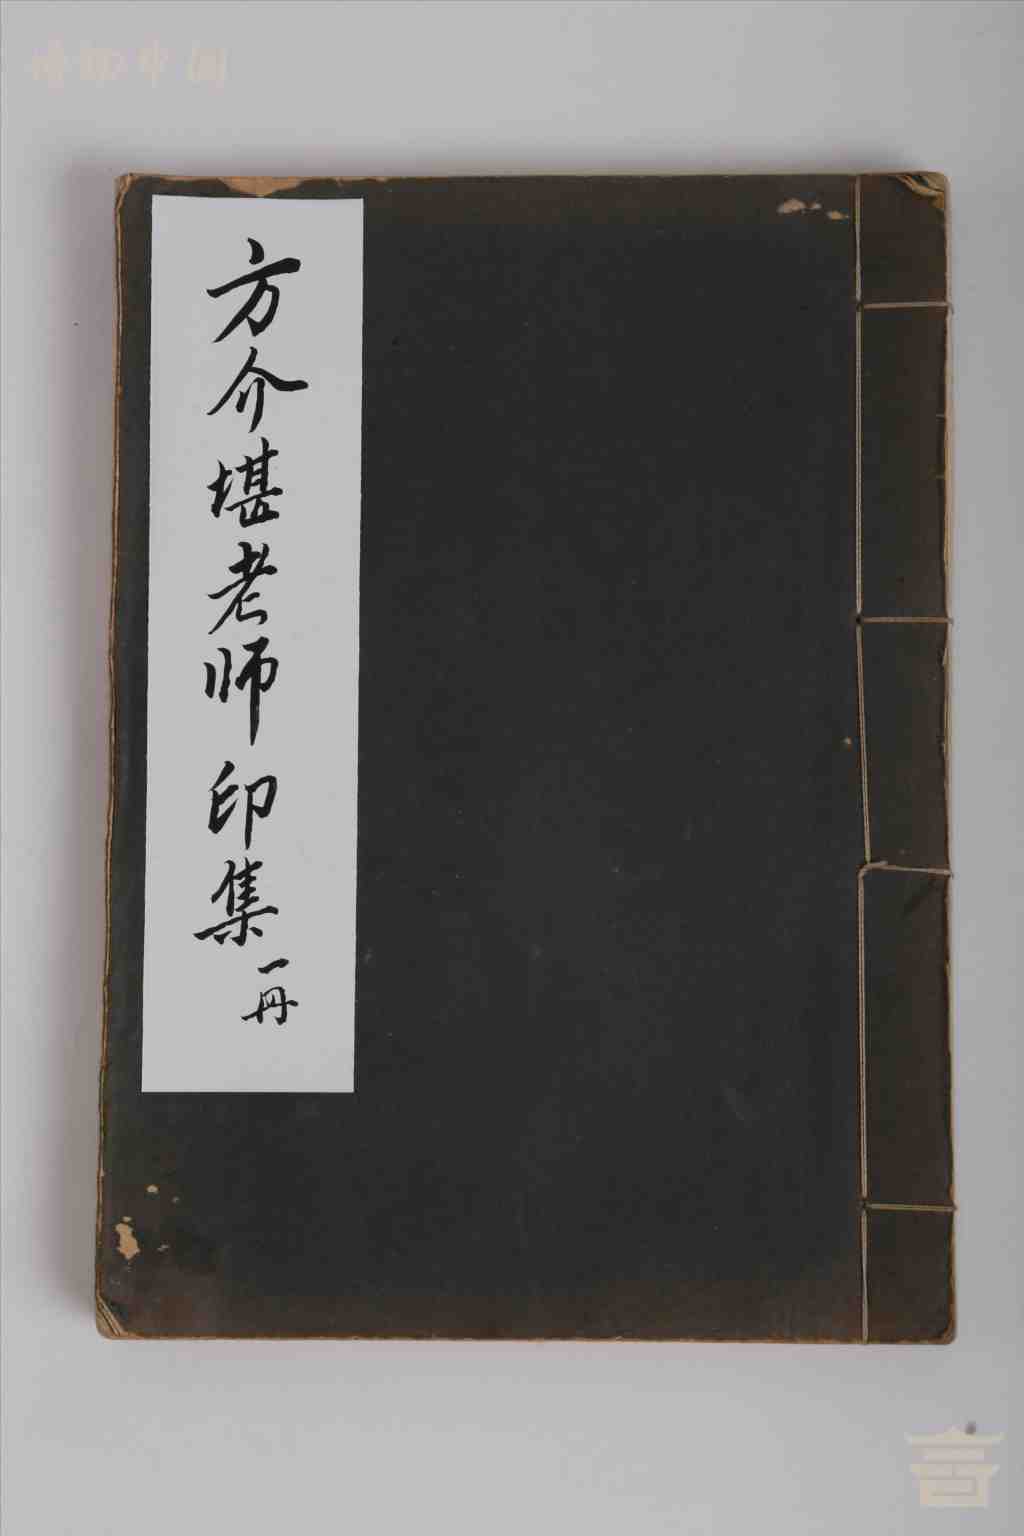 方介堪老师印集
一册
博物中国